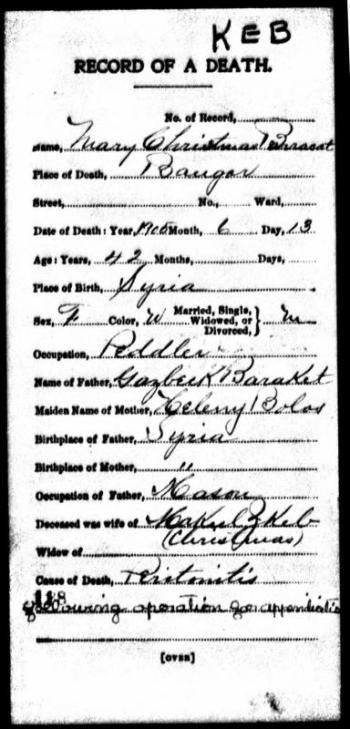 KEB
RECORD OF A DEATH.
No. of Record,
Name, Mary Christmas Baracat
Place of Death, Bangor
Street, No., Ward,
Date of Death: Year, 1905 Month, 6 Day, 13
Age: Years, 42 Months, Days,
Place of Birth, Syria
Sex, F Color, W Married, Single, Widowed, or Divorced, } M
Occupation, Peddler
Name of Father, Gazbeck Baraket
Maiden Name of Mother, Heleny Bolos
Birthplace of Father, Syria
Birthplace of Mother, "
Occupation of Father, Mason
Deceased was wife of Keb
(Christmas)
Widow of
Cause of Death, Peritonitis
118
following operation for appendicitis
[OVER]